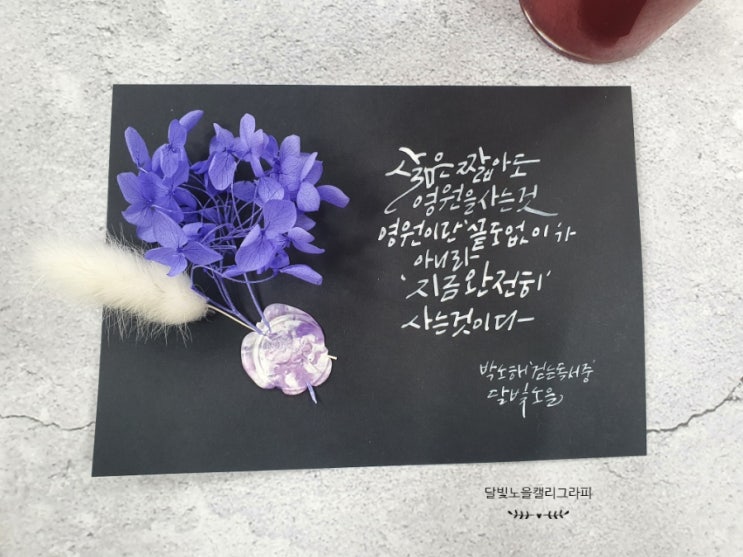 삶은 짧아도
영원을 사는 것
영원이란 '끝도 없이'가
아니라
'지금 완전히'
사는 것이다
박노해 '걷는 독서 중'
달빛노을
달빛노을캘리그라피